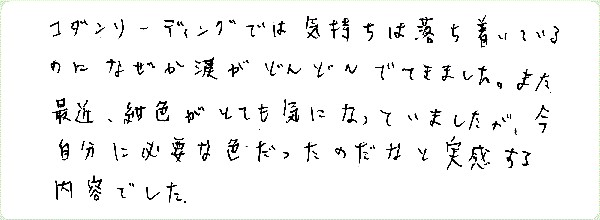 コダンリーディングでは気持ちは落ち着いている
のになぜか涙がどんどんでてきました。また
最近、紺色がとても気になっていましたが、今
自分に必要な色だったのだなと実感する
内容でした.